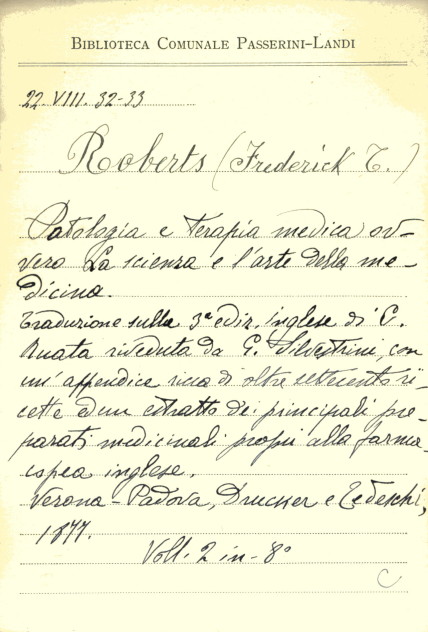 BIBLIOTECA COMUNALE PASSERINI-LANDI
22. VIII. 32-33
Roberts (Frederick T.)
Patologia e terapia medica ov-
vero La scienza e l'arte della me-
dicina.
Traduzione sulla 3ª ediz. inglese di C.
Ruata riveduta da G. Silvestrini, con
un' appendice ricca di oltre settecento ri-
cette ed un estratto dei principali pre-
parati medicinali propri alla farma-
copea inglese.
Verona-Padova, Drucker e Tedeschi,
1877.
Voll. 2 in-8°
C